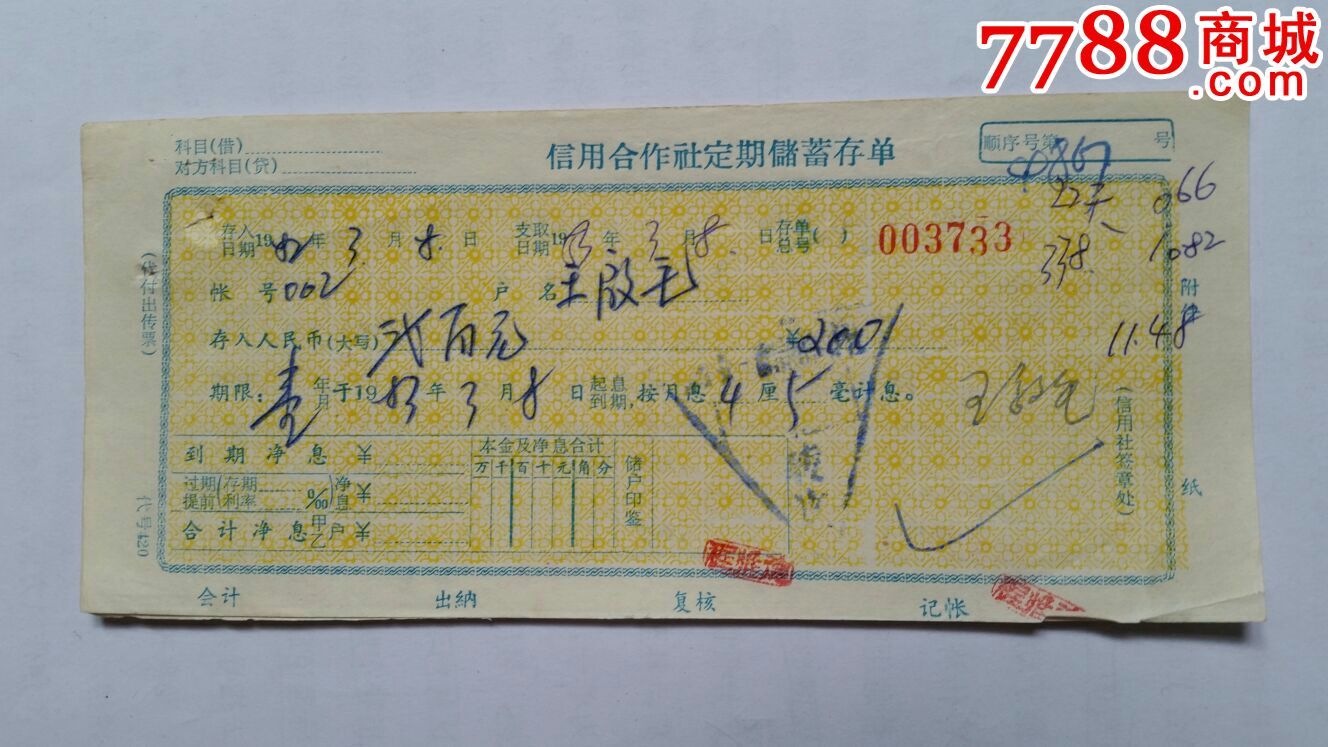 7788商城
.com
科目(借)
对方科目(贷)
信用合作社定期储蓄存单
顺序号第 号
22天 0.66
存入日期1982年3月8日 支取日期19 年3月8日 存单总号( ) 003733
338 10.82
帐号002 户名王殷毛
附件
存入人民币(大写)弍百元 ¥200
11.48
期限:壹年月于1983年3月8日起息到期,按月息4厘5毫计息。
到期净息¥
本金及净息合计
万千百十元角分
储户印鉴
过期提前(存期利率 ‰)净息¥
合计净息甲乙户¥
(信用社签章处)
纸
(代付出传票)
代号420
会计 出纳 复核 记帐